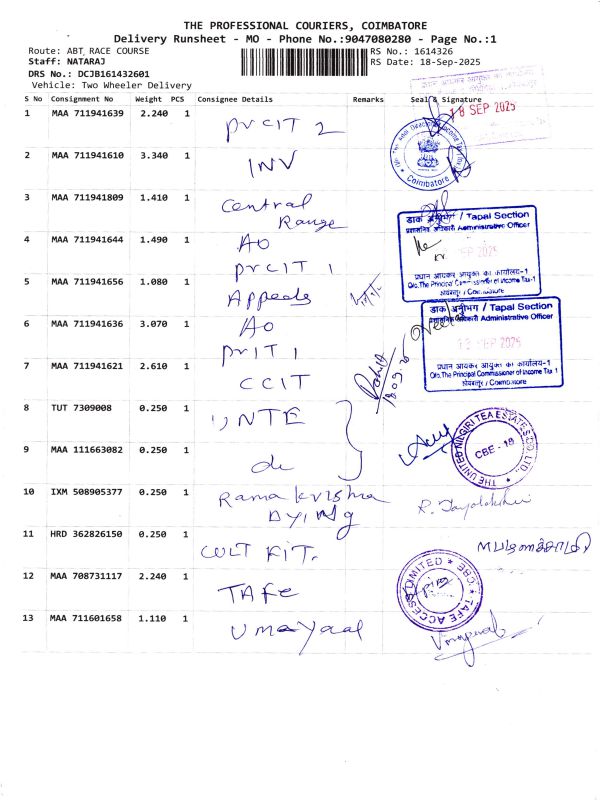 THE PROFESSIONAL COURIERS, COIMBATORE
Delivery Runsheet - MO - Phone No.:9047080280 - Page No.:1
Route: ABT RACE COURSE
RS No.: 1614326
Staff: NATARAJ
RS Date: 18-Sep-2025
DRS No.: DCJB161432601
Vehicle: Two Wheeler Delivery
S No Consignment No Weight PCS Consignee Details Remarks Seal & Signature
18 SEP 2025
1 MAA 711941639 2.240 1 PrCIT 2
2 MAA 711941610 3.340 1 INV
Coimbatore
3 MAA 711941809 1.410 1 Central
Range
डाक अनुभाग / Tapal Section
प्रशासनिक अधिकारी Administrative Officer
SEP 2025
प्रधान आयकर आयुक्त का कार्यालय-1
O/o.The Principal Commissioner of Income Tax-1
कोयम्बत्तूर / Coimbatore
4 MAA 711941644 1.490 1 AO
PrCIT 1
5 MAA 711941656 1.080 1 Appeals
डाक अनुभाग / Tapal Section
प्रशासनिक अधिकारी Administrative Officer
SEP 2025
प्रधान आयकर आयुक्त का कार्यालय-1
O/o.The Principal Commissioner of Income Tax-1
कोयम्बत्तूर / Coimbatore
6 MAA 711941636 3.070 1 AO
PrIT 1
7 MAA 711941621 2.610 1 CCIT
8 TUT 7309008 0.250 1 UNTE
THE UNITED NILGIRI TEA ESTATES CO. LTD.
CBE - 18
9 MAA 111663082 0.250 1 do
10 IXM 508905377 0.250 1 Rama krishna
DYING
11 HRD 362826150 0.250 1 CULT FIT.
12 MAA 708731117 2.240 1 TAFE
TAFE ACCESS LIMITED CBE
13 MAA 711601658 1.110 1 Umayaal